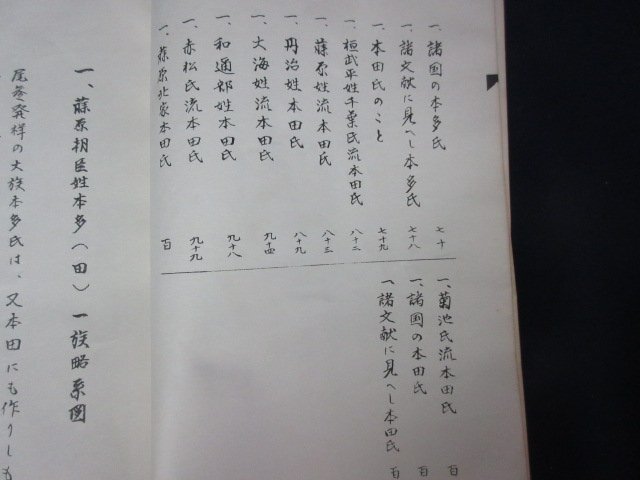 一、諸国の本多氏 七十
一、諸文献に見へし本多氏 七十八
一、本田氏のこと 七十九
一、桓武平姓千葉氏流本田氏 八十二
一、藤原姓流本田氏 八十三
一、丹治姓本田氏 八十九
一、大海姓流本田氏 九十四
一、和通部姓本田氏 九十八
一、赤松氏流本田氏 九十九
一、藤原北家本田氏 百
一、菊池氏流本田氏 百
一、諸国の本田氏 百
一、諸文献に見へし本田氏 百
一、藤原朝臣姓本多(田)一族略系図
尾参発祥の大族本多氏は、又本田にも作りしも